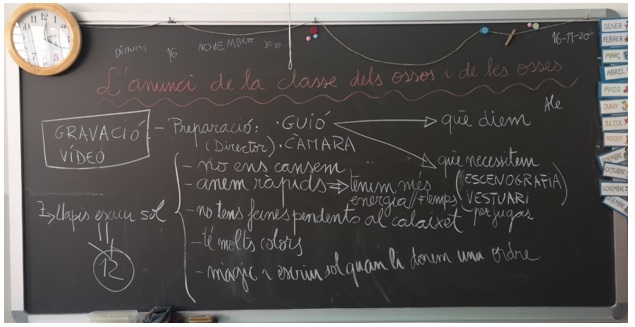 Dilluns 16 NOVEMBRE 2020
16-11-20
L'anunci de la classe dels ossos i de les osses
GRAVACIÓ VÍDEO
- Preparació: · GUIÓ → què diem
(Director) · CÀMARA
què necessitem
(ESCENOGRAFIA
VESTUARI)
- no ens cansem
- anem ràpids → tenim més energia // + temps per jugar
- no tens feines pendents al calaixet
- té molts colors
- màgic i escriu sol quan li donem una ordre
llapis escriu sol
12
Ale
GENER
FEBRER
MARÇ
ABRIL
MAIG
JUNY
JULIOL
OCTUBRE
NOVEMBRE